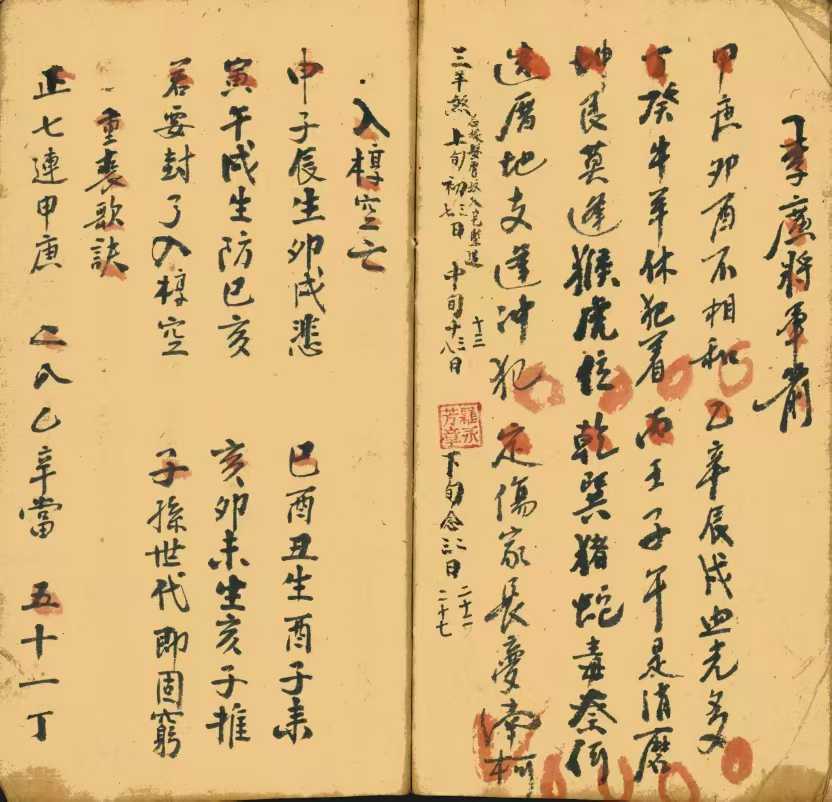 李廣將軍箭
甲庚卯酉不相和 乙辛辰戌必克多
丁癸牛羊休犯着 丙壬子午是消磨
坤艮莫逢猴虎位 乾巽猪蛇毒奈何
造曆地支逢冲犯 定傷家長夢南柯
三羊煞 上旬初三七日 中旬十三十八日 下旬念二三日
十三
二十二
二十七
羅永芳章
入椁空亡
申子辰生卯戌悲 巳酉丑生酉子来
寅午戌生防巳亥 亥卯未生亥子推
若要封了入椁空 子孫世代即固窮
重喪歌訣
正七連甲庚 二八乙辛當 五十一丁